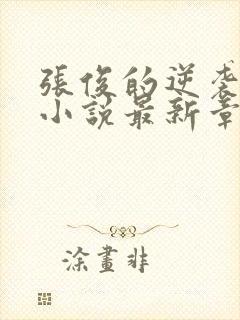 張俊的逆袭
小說最新章
涂畫非